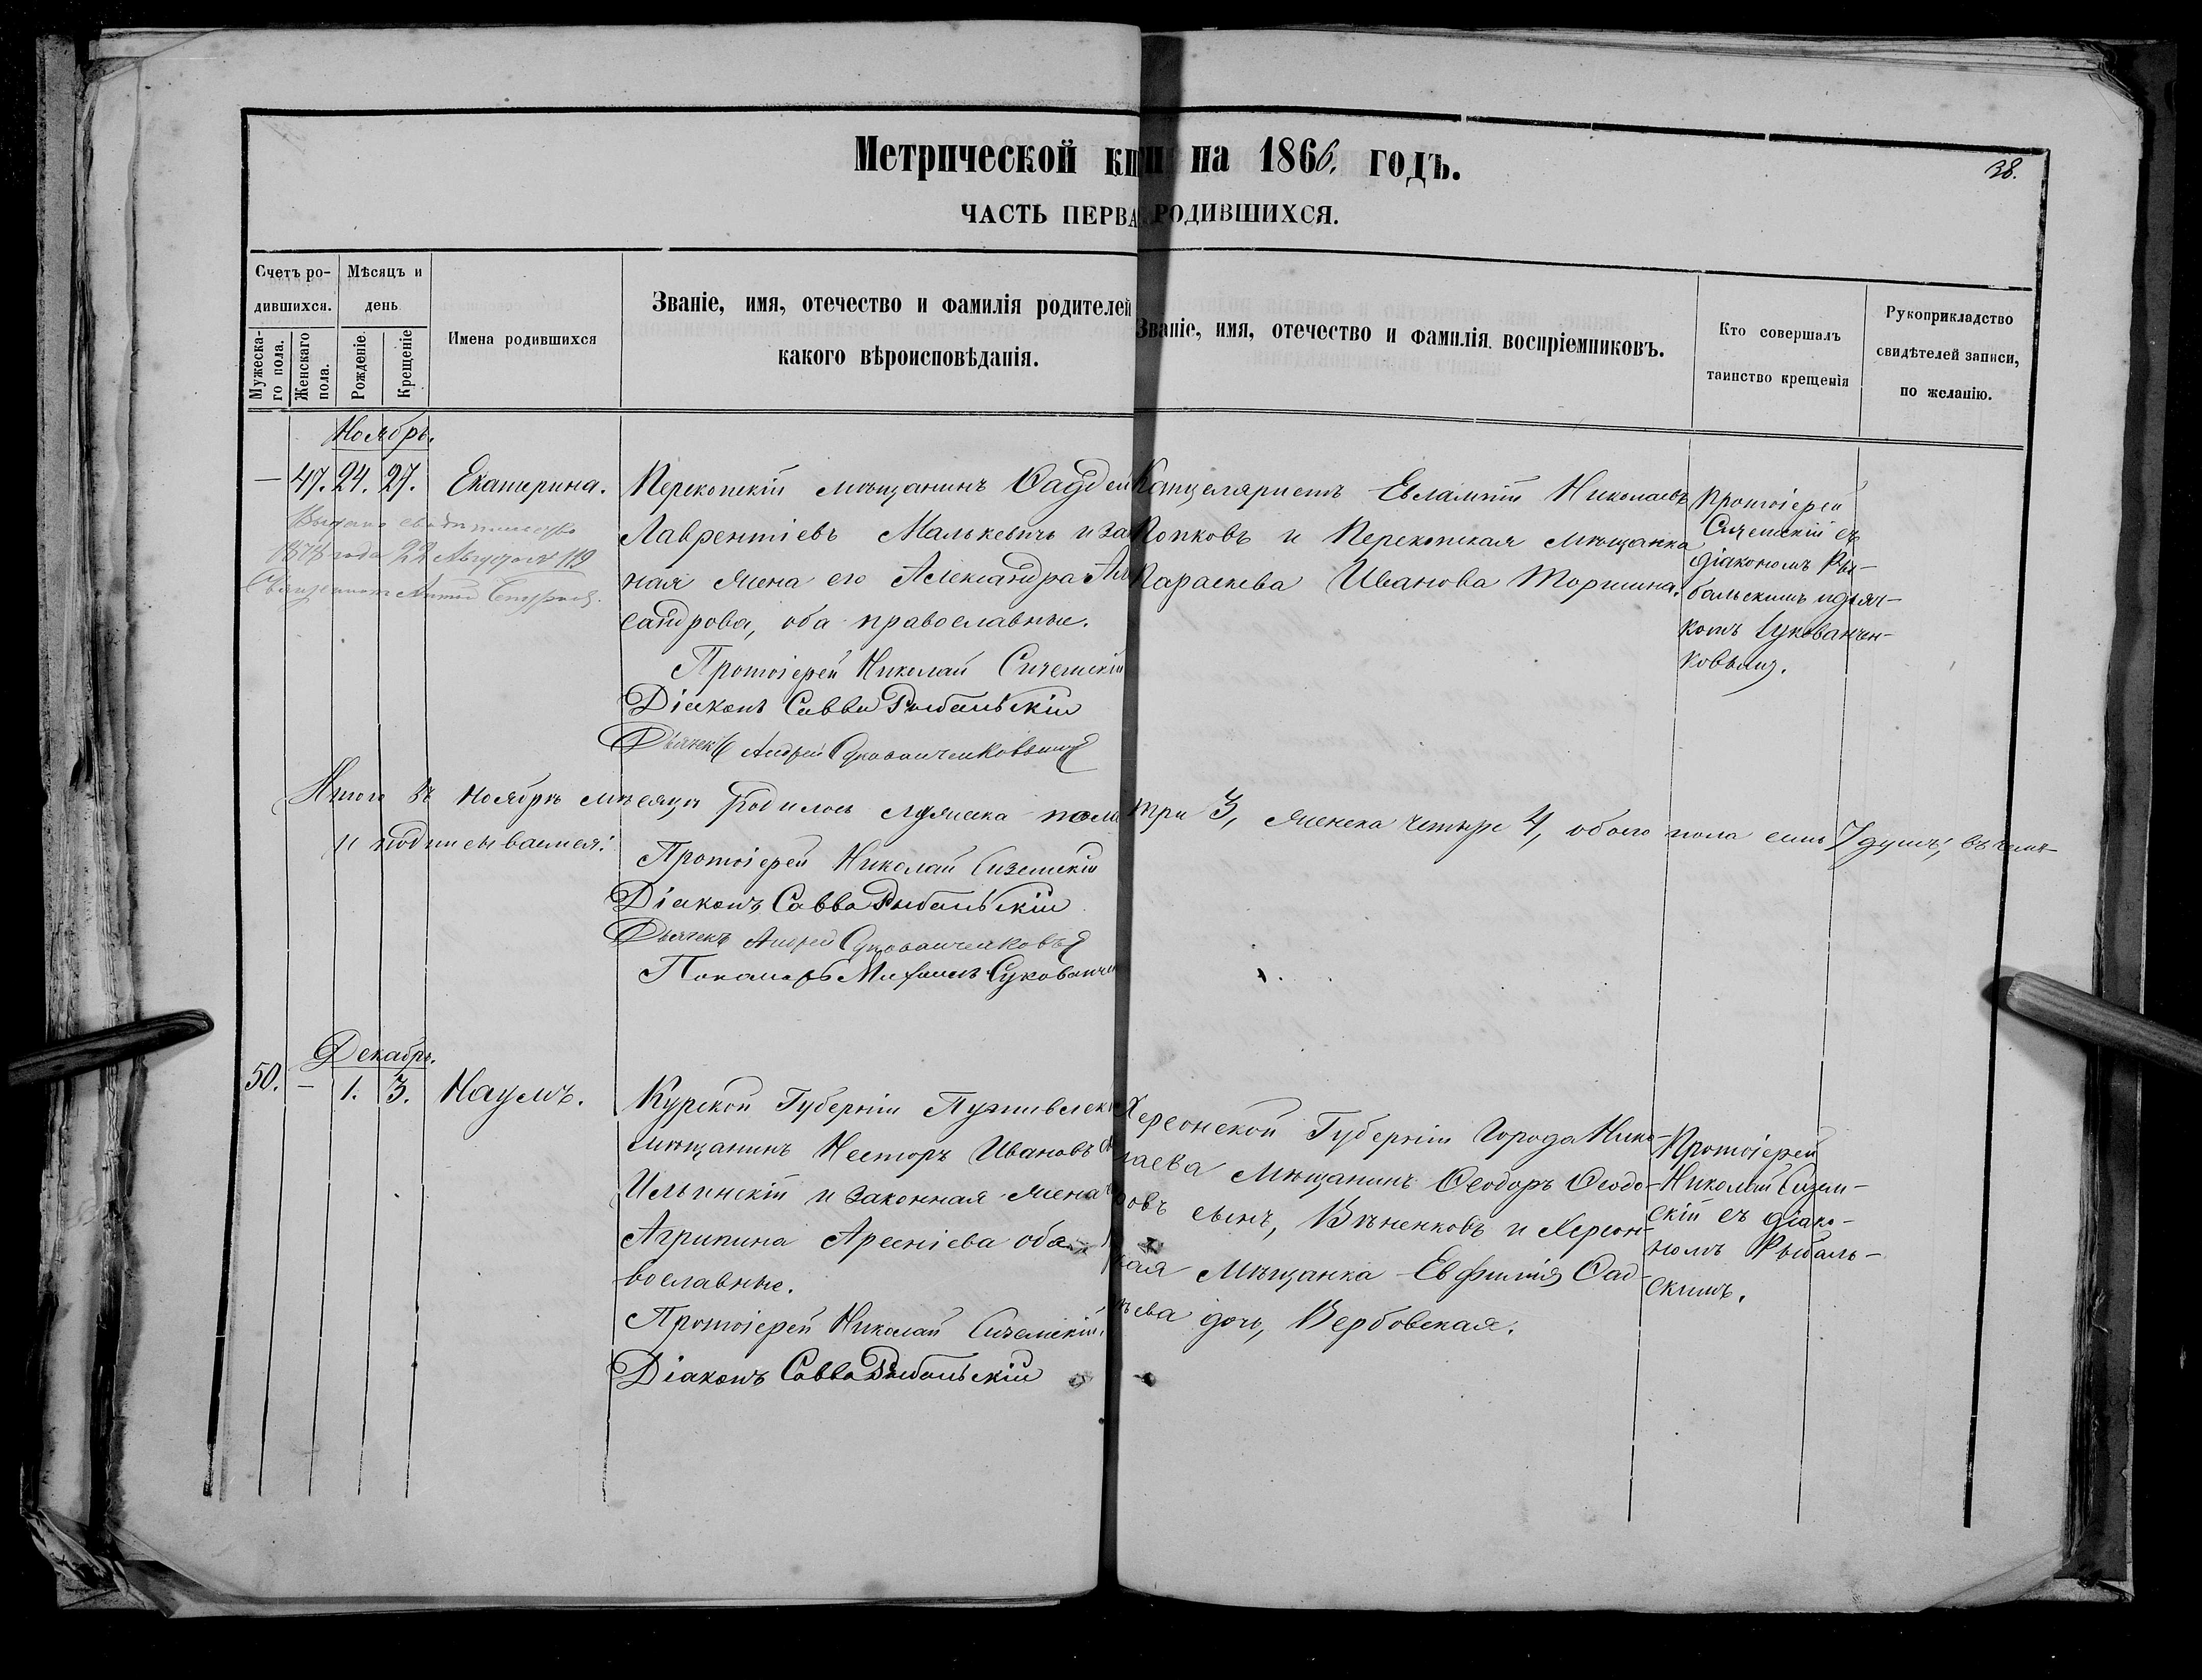 Метрической кни на 1866. годъ.
38.
ЧАСТЬ ПЕРВА РОДИВШИХСЯ.
Счетъ ро-
дившихся.
Мужеска-
го пола.
Женскаго
пола.
Мѣсяцъ и
день
Рожденіе.
Крещеніе
Имена родившихся
Званіе, имя, отечество и фамилія родителей
какого вѣроисповѣданія.
Званіе, имя, отечество и фамилія воспріемниковъ.
Кто совершалъ
таинство крещенія
Рукоприкладство
свидѣтелей записи,
по желанію.
Ноябрь.
— 47. 24. 27. Екатерина.
Выдано свидѣтельство
187 года 22 Августа № 119
Перекопскій мѣщанинъ Фаддей
Лаврентіевъ Малькевичъ и за
ная жена его Александра Ал
сандрова, оба православные.
Протоіерей Николай Сиземскій
Діаконъ Савва Рыбальскій
Дьячекъ Андрей Сукованченковъ
Канцеляристъ Евлампій Николаевъ
Попковъ и Перекопская мѣщанка
Параскева Иванова Торшина.
Протоіерей
Сиземскій съ
діакономъ Ры-
бальскимъ и дьяч-
комъ Цукованчен-
ковымъ.
Итого въ Ноябрѣ мѣсяцѣ родилось мужеска пола три 3, женска четыре 4, обоего пола семь 7 душъ, въ чемъ
и подписываемся:
Протоіерей Николай Сиземскій
Діаконъ Савва Рыбальскій
Дьячекъ Андрей Сукованченковъ
Пономарь Михаилъ Сукованче
Декабрь.
50. — 1. 3. Наумъ.
Курской Губерніи Путивльск
мѣщанинъ Несторъ Ивановъ
Ильинскій и законная жена
Агрипина Арсеніева оба
вославные.
Протоіерей Николай Сиземскій.
Діаконъ Савва Рыбальскій
Херсонской Губерніи Города Нико-
лаева Мѣщанинъ Ѳеодоръ Ѳеодо-
ровъ сынъ, Вѣненковъ и Херсон-
кая Мѣщанка Евфимія Фад-
ѣева дочь, Вербовская.
Протоіерей
Николай Сизем-
скій съ діако-
номъ Рыбаль-
скимъ.